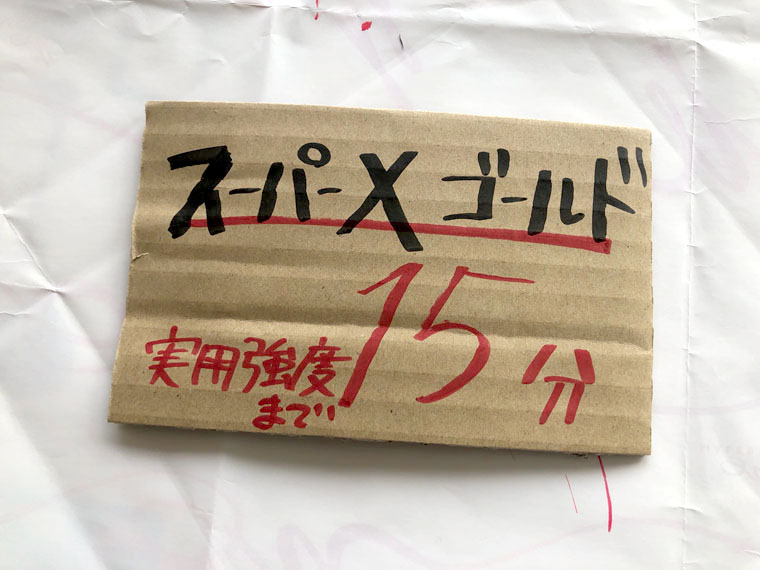 スーパーX ゴールド
実用強度まで 15分